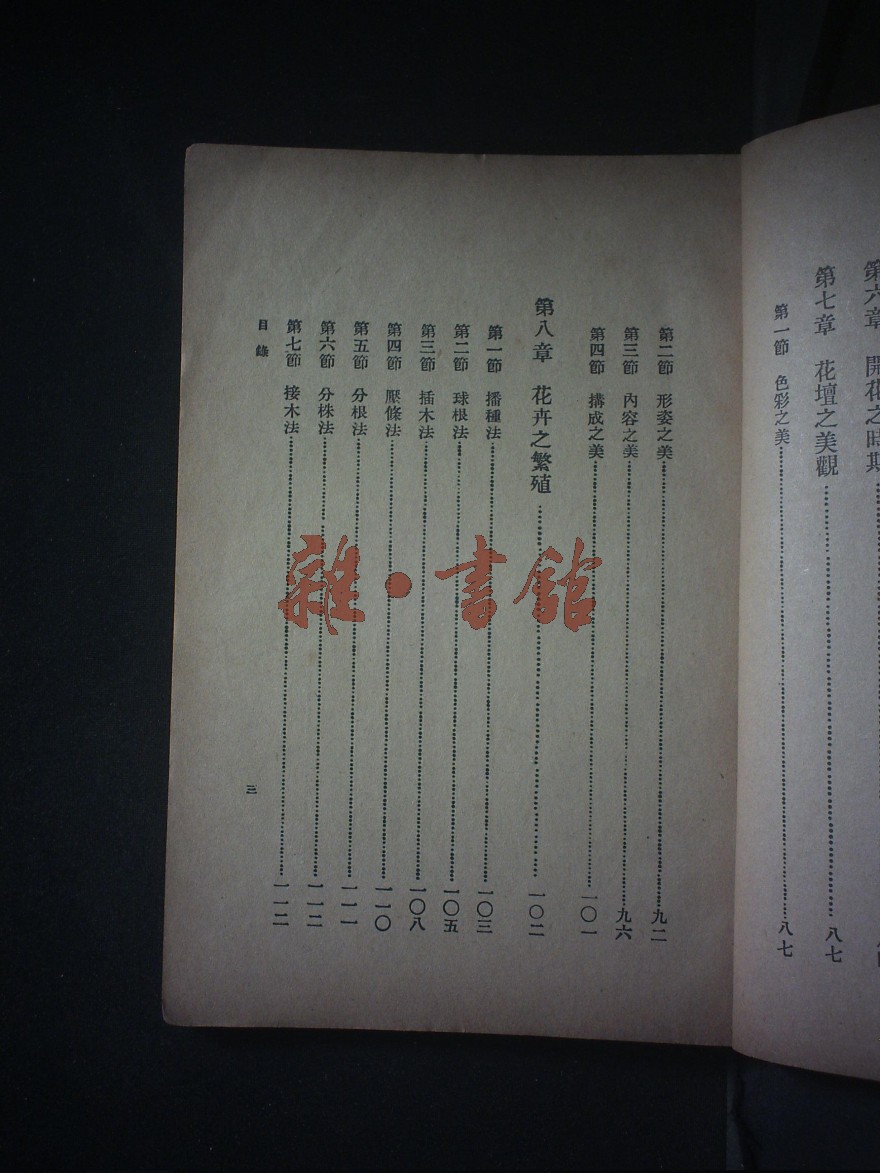 第六章　開花之時期
第七章　花壇之美觀……八七
第一節　色彩之美……八七
第二節　形姿之美……九二
第三節　內容之美……九六
第四節　搆成之美……一〇一
第八章　花卉之繁殖……一〇二
第一節　播種法……一〇三
第二節　球根法……一〇五
第三節　插木法……一〇八
第四節　壓條法……一一〇
第五節　分根法……一一一
第六節　分株法……一一二
第七節　接木法……一一二
目錄
三
雜·書館